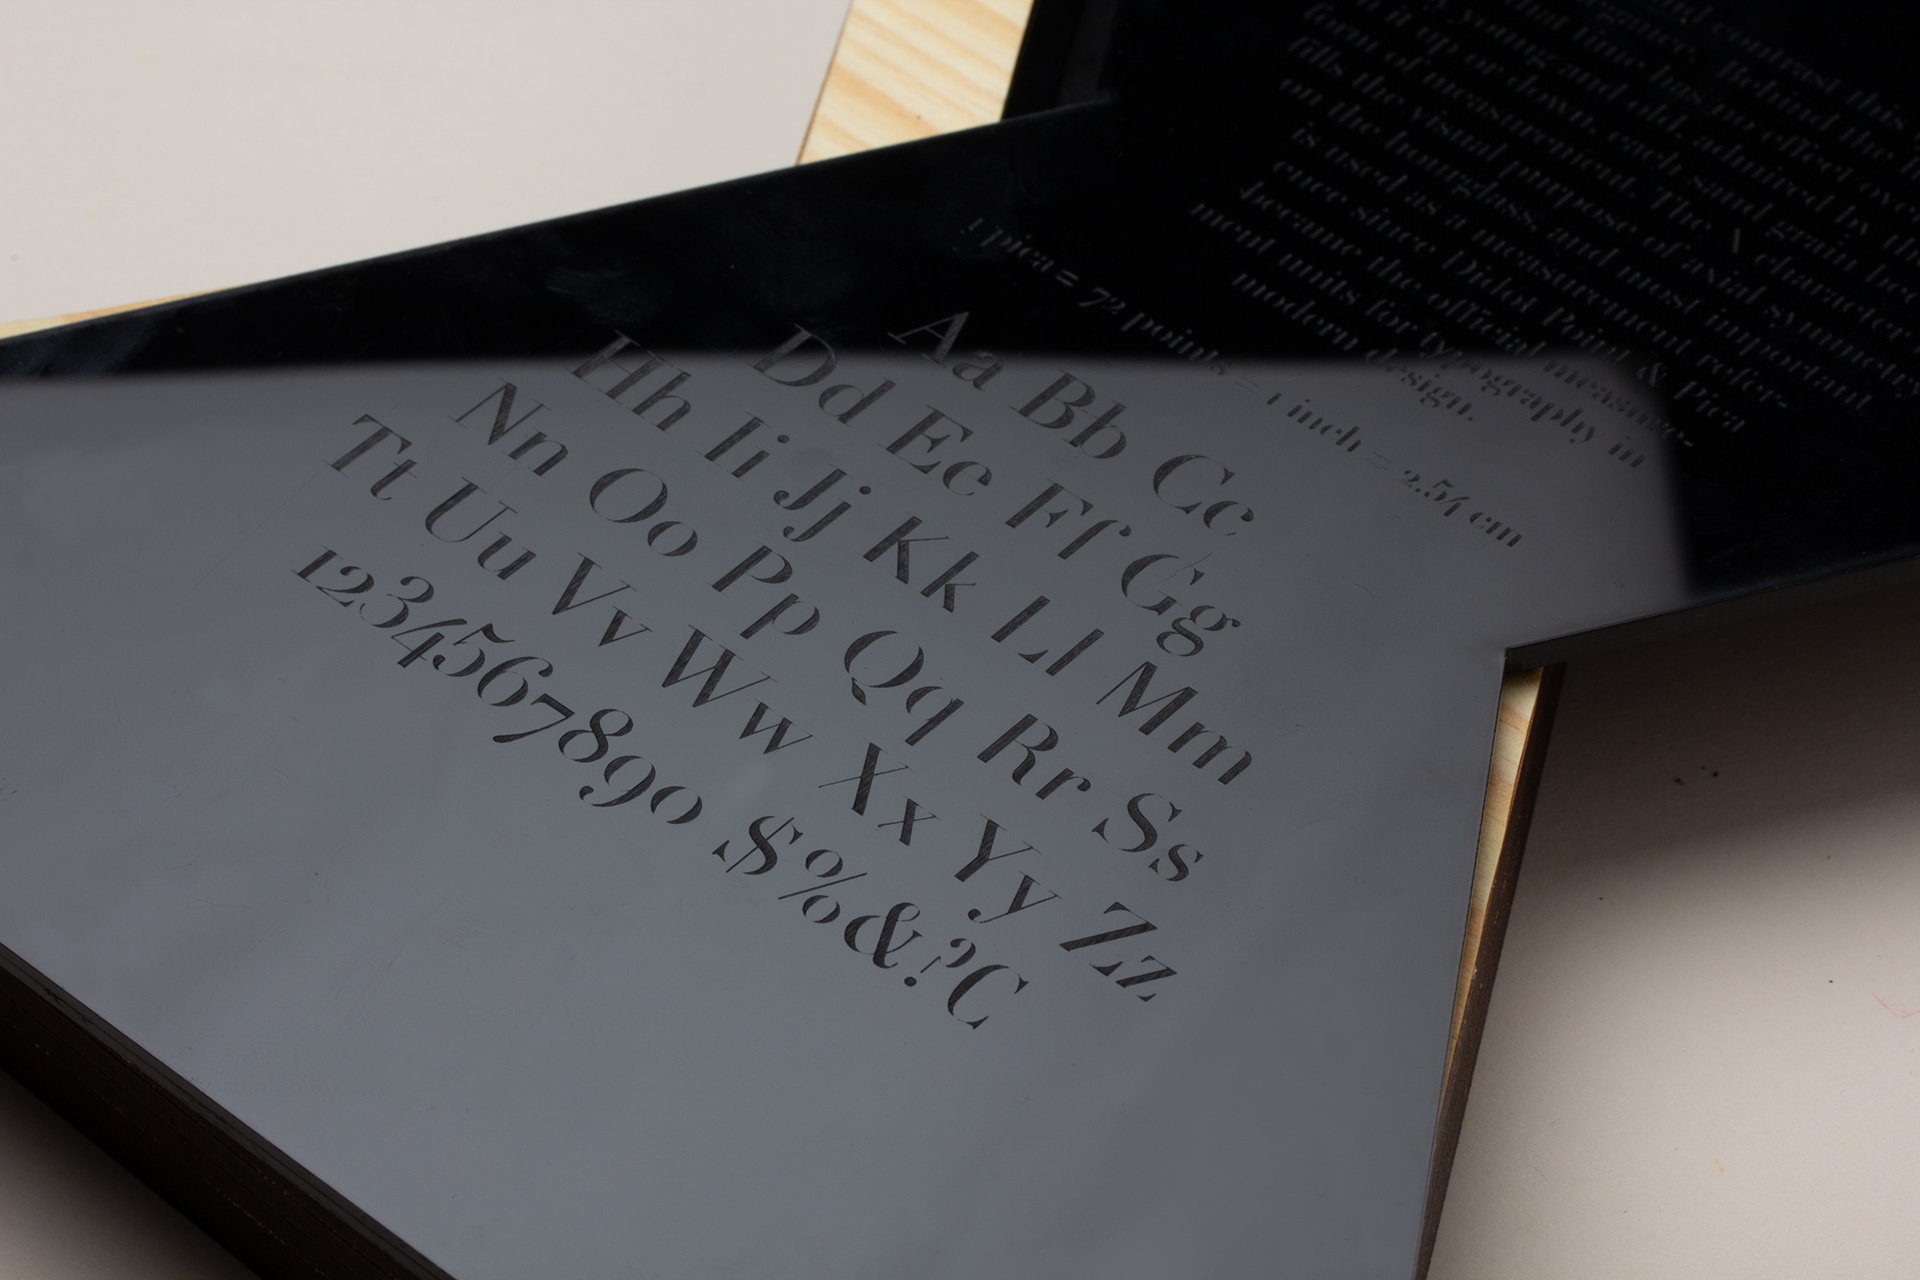 and contrast this
elegance. Behind the
that time has no effect over
young and old, admired by the
it up or down, each sand grain
form of measurement. The X character
fills the visual purpose of axial symmetry
on the hourglass, and most important
is used as a measurement refer-
ence since Didot Point & Pica
became the official measure-
ment units for typography in
modern design.
1 pica = 72 points = 1 inch = 2.54 cm
Aa Bb Cc
Dd Ee Ff Gg
Hh Ii Jj Kk Ll Mm
Nn Oo Pp Qq Rr Ss
Tt Uu Vv Ww Xx Yy Zz
1234567890 $%&?C